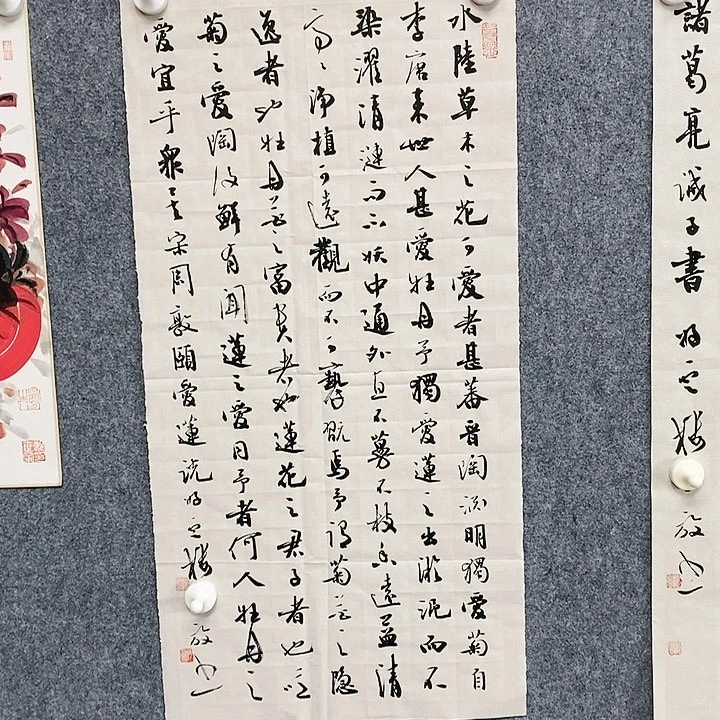 諸葛亮誡子書
水陸草木之花可愛者甚蕃晉陶渊明獨愛菊自
李唐来世人甚愛牡丹予獨愛蓮之出淤泥而不
染濯清漣而不妖中通外直不蔓不枝香遠益清
亭々净植可遠觀而不可褻翫焉予謂菊花之隐
逸者也牡丹花之富貴者也蓮花之君子者也噫
菊之愛陶後鮮有聞蓮之愛同予者何人牡丹之
愛宜乎衆矣宋周敦頤愛蓮説